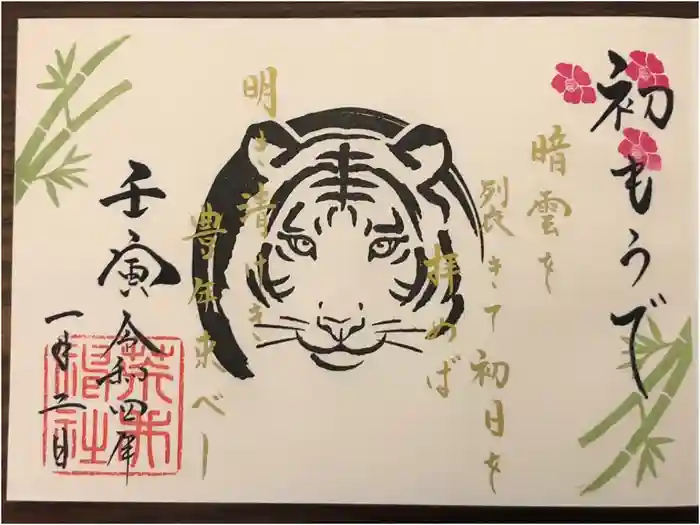 初もうで
暗雲を
裂きて初日を
拝めば
明き清けき
豊年来べし
壬寅 令和四年
一月二日